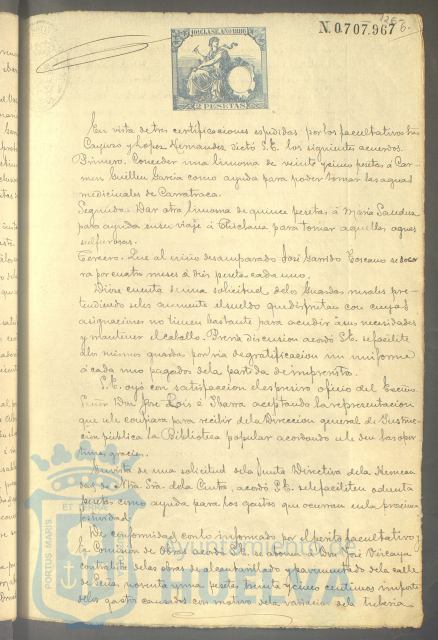 126
6-
10ª CLASE. AÑO 1886
N. 0.707.967
2 PESETAS
En vista de tres certificaciones espedidas por los facultativos
Cayuso y Lopez Hernandez dictó S.E. los siguientes acuerdos.
Primero. Conceder una limosna de veinte y cinco pesetas á Car-
men Guillen Garcia como ayuda para poder tomar las aguas
medicinales de Carratraca.
Segundo. Dar otra limosna de quince pesetas á Maria
para ayuda en su viaje á Chiclana para tomar aquellas aguas
sulfurosas.
Tercero. Que al niño desamparado José Garrido Toscano se socor
ra por cuatro meses á diez pesetas cada uno.
Diose cuenta de una solicitud de los Guardas rurales pre-
tendiendo se les aumente el sueldo que disfrutan con cuyas
asignaciones no tienen bastante para acudir á sus necesidades
y mantener el caballo. Previa discusion acordó S.E. se facilite
á los mismos guardas por via de gratificacion un uniforme
á cada uno pagados de la partida de imprevistos.
S.E. oyó con satisfaccion el espresivo oficio del Excmo.
Señor Don José aceptando la representacion
que se le confiara para recibir de la Direccion general de Instruc-
cion publica la Biblioteca popular acordando se le den las opor
tunas gracias.
En vista de una solicitud de la Junta Directiva de la Herman
dad de Ntra. Sra. de la Cinta, acordó S.E. se le faciliten ochenta
pesetas como ayuda para los gastos que ocurran en la proxima
festividad.
De conformidad con lo informado por el perito facultativo y
la Comision de Obras acordó S.E. se abonen á Don José Vizcaya
contratista de las obras de alcantarillado y pavimentado de la calle
de noventa y una pesetas veinte y cinco centimos importe
de los gastos causados con motivo de la variacion de la tuberia
PORTUS MARIS
ET TERRÆ
Ayuntamiento de
HUELVA